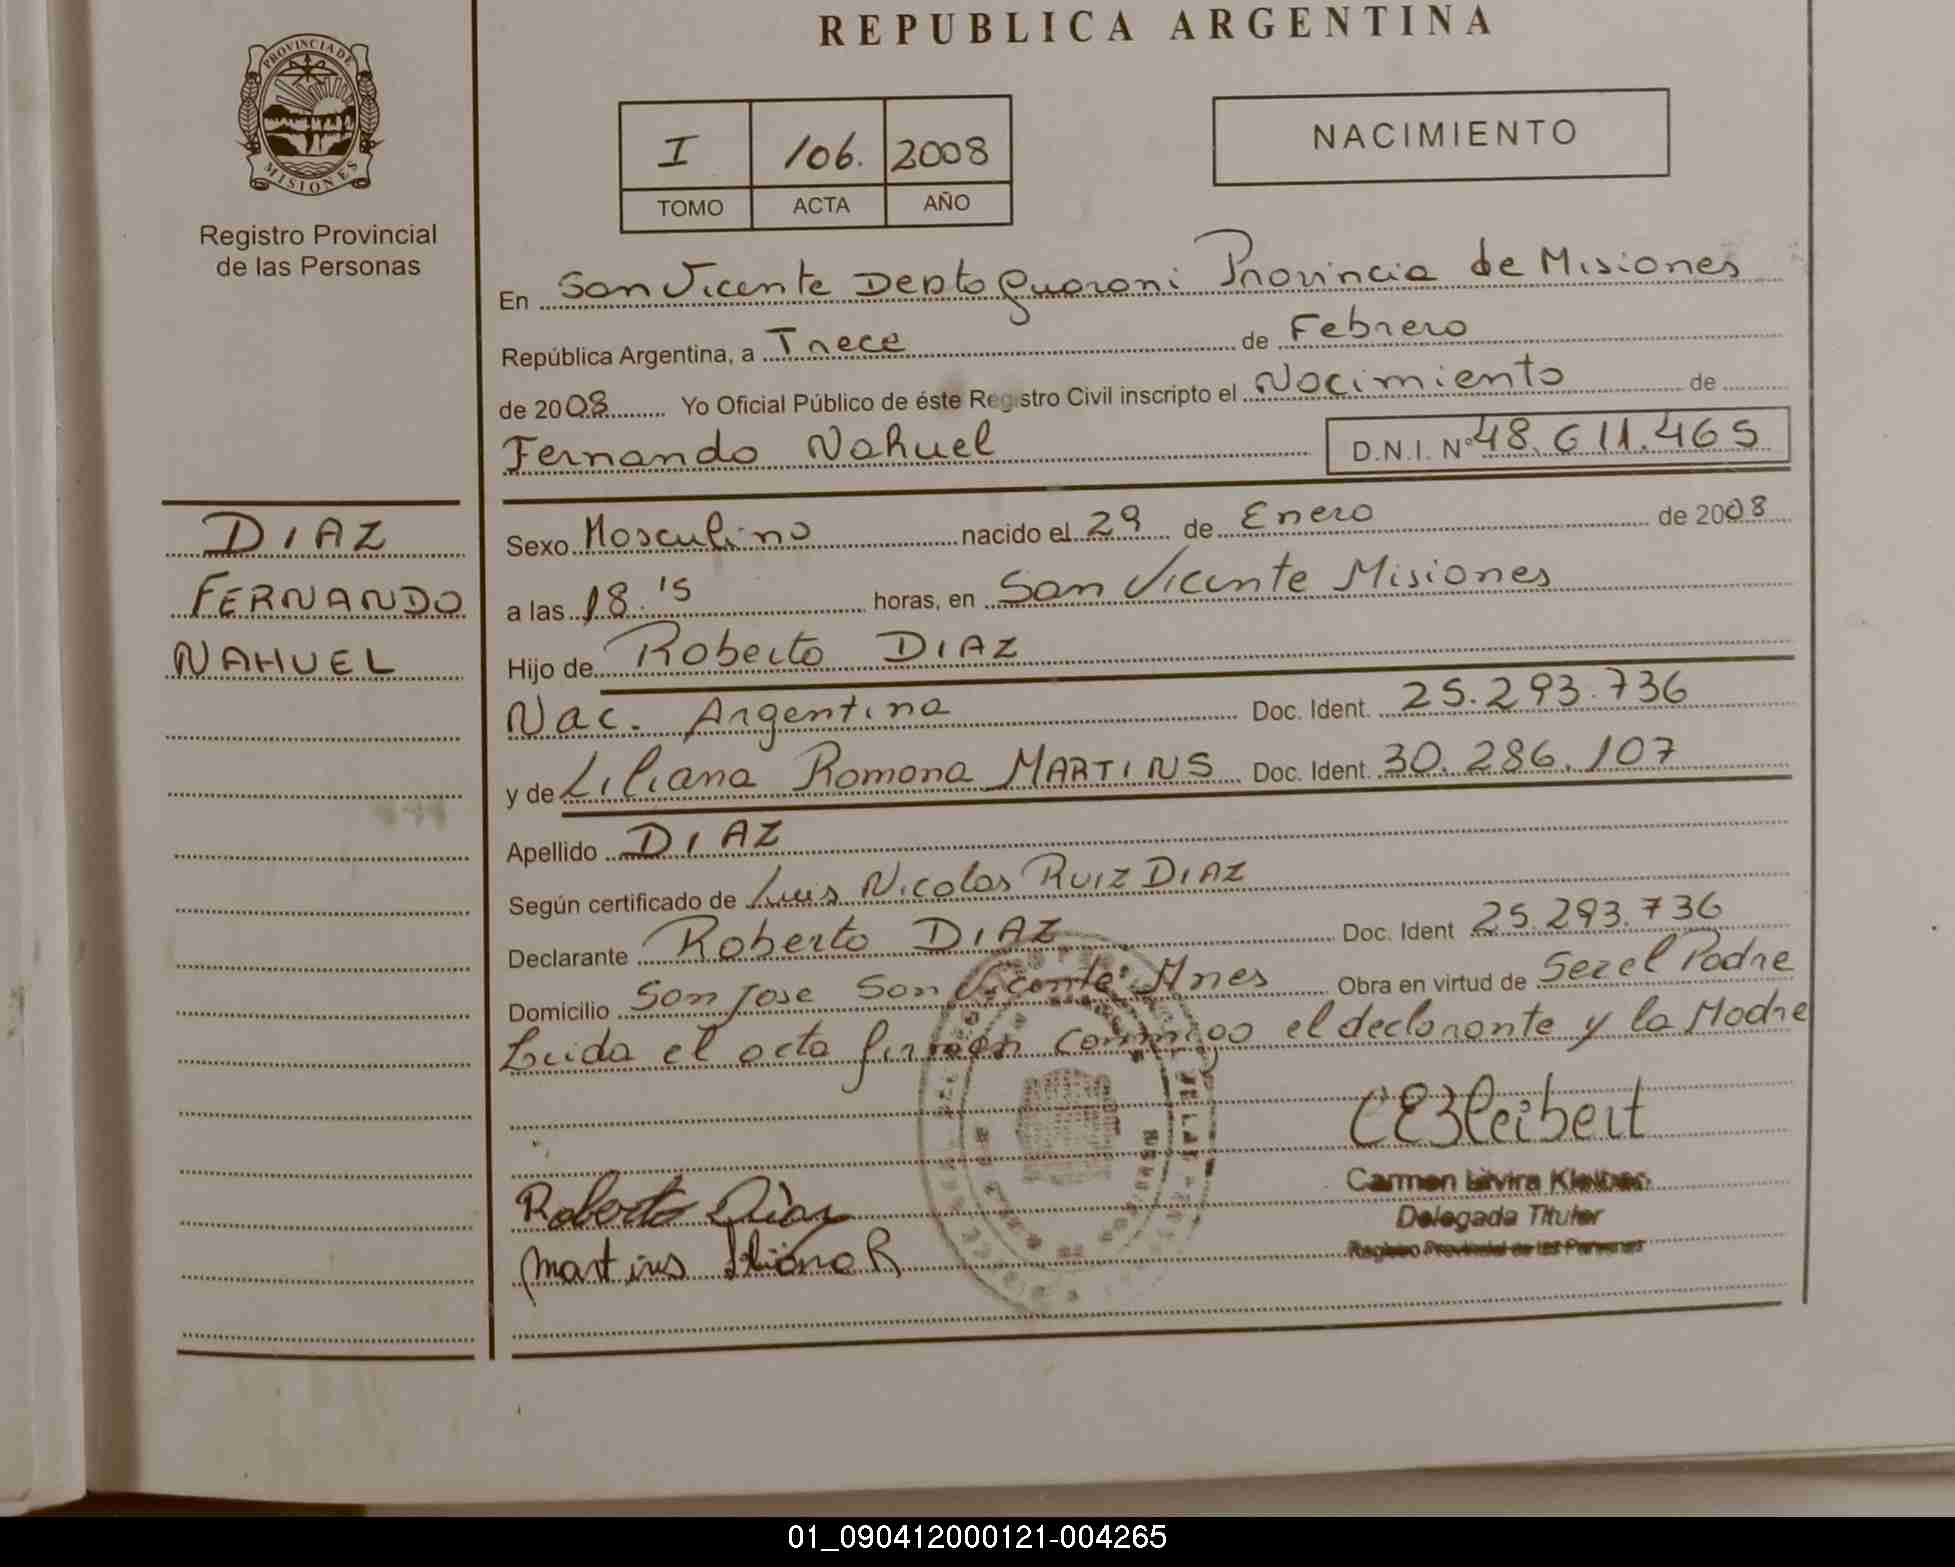 REPUBLICA ARGENTINA
PROVINCIA DE
MISIONES
Registro Provincial
de las Personas
I 106. 2008
TOMO ACTA AÑO
NACIMIENTO
En San Vicente Depto Guarani Provincia de Misiones
República Argentina, a Trece de Febrero
de 2008 Yo Oficial Público de éste Registro Civil inscripto el Nacimiento de
Fernando Nahuel D.N.I. Nº 48.611.465
DIAZ
FERNANDO
NAHUEL
Sexo Masculino nacido el 29 de Enero de 2008
a las 18.15 horas, en San Vicente Misiones
Hijo de Roberto DIAZ
Nac. Argentina Doc. Ident. 25.293.736
y de Liliana Ramona MARTINS Doc. Ident. 30.286.107
Apellido DIAZ
Según certificado de Luis Nicolas RUIZ DIAZ
Declarante Roberto DIAZ Doc. Ident 25.293.736
Domicilio San Jose San Vicente Mnes Obra en virtud de Ser el Padre
Leida el acta firman conmigo el declarante y la Madre
Roberto Diaz
Martins Liliana R
Carmen
Delegada Titular
Registro Provincial de las Personas
01_090412000121-004265